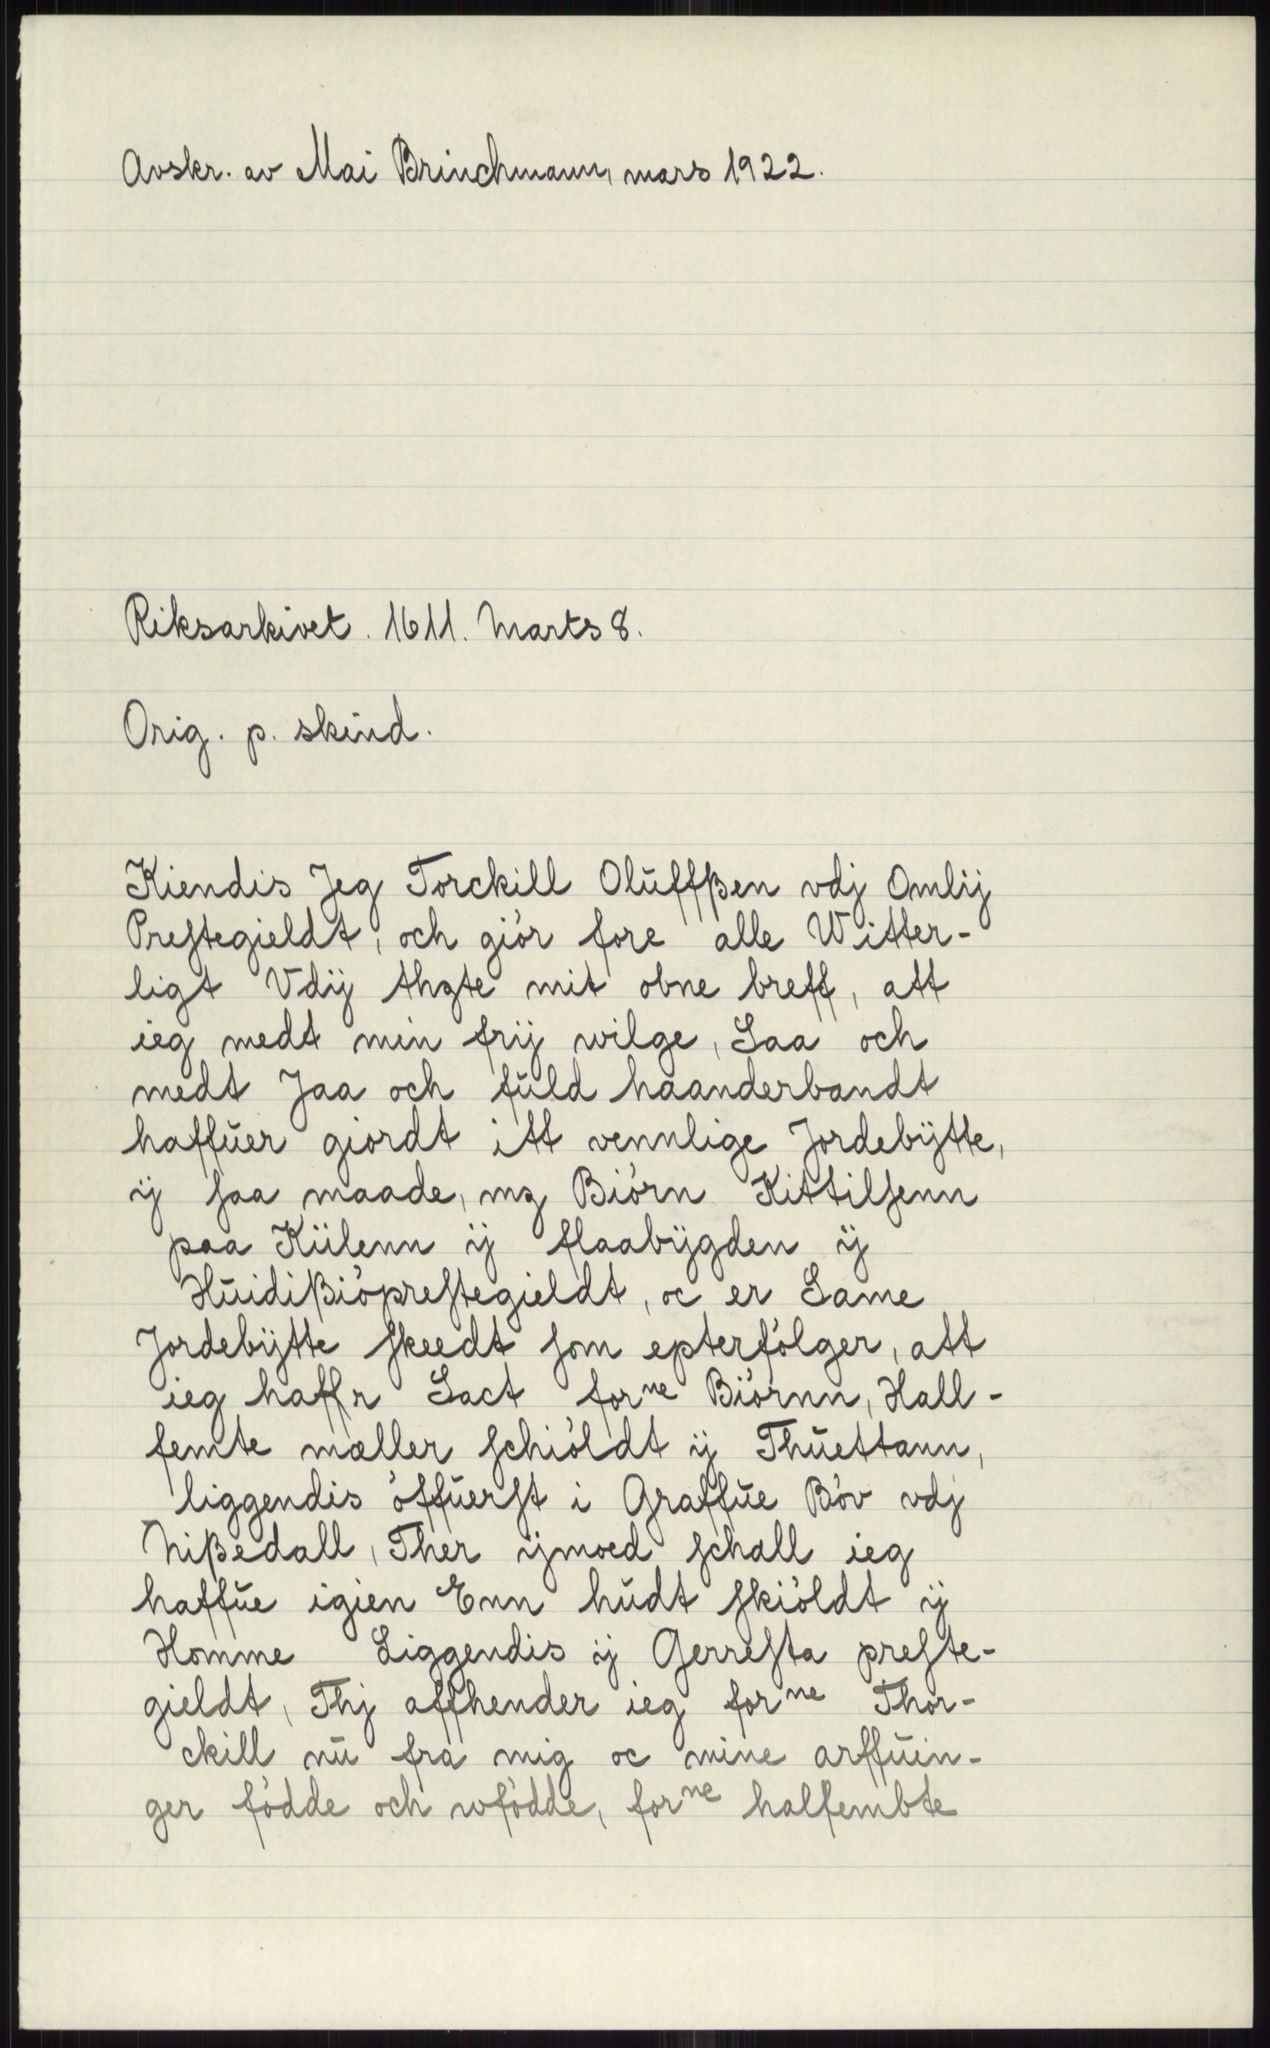 Avskr. av Mai Brinchmann, mars 1922.
Riksarkivet. 1611. Marts 8.
Orig. p. skind.
Kiendis Jeg Torckill Olŭffßen vdj Omlij
Preſtegieldt, och giör fore alle Witter-
ligt Vdij thzte mit obne breff, att
ieg medt min frij wilge, Saa och
medt Jaa och fŭld haanderbandt
haffŭer giordt itt vennlige Jordebÿtte,
ij ſaa maade, mz Biörn Kittilſenn
paa Kiilenn ij flaabÿgden ij
Hŭidißiöpreſtegieldt, oc er Same
Jordebÿtte ſkeedt ſom epterfölger, att
ieg haffr Sact forne Biörnn, Hall-
femte mæller ſchiöldt ij Thŭettann,
liggendis öffŭerſt i Graffŭe Böv vdj
Nißedall, Ther ijmoed ſchall ieg
haffŭe igien Enn hŭdt ſkiöldt ij
Homme Liggendis ij Gerreſta preſte-
gieldt, Thj affhender ieg forne Thor-
ckill nŭ fra mig oc mine arffŭin-
ger födde och wfödde, forne halfembte